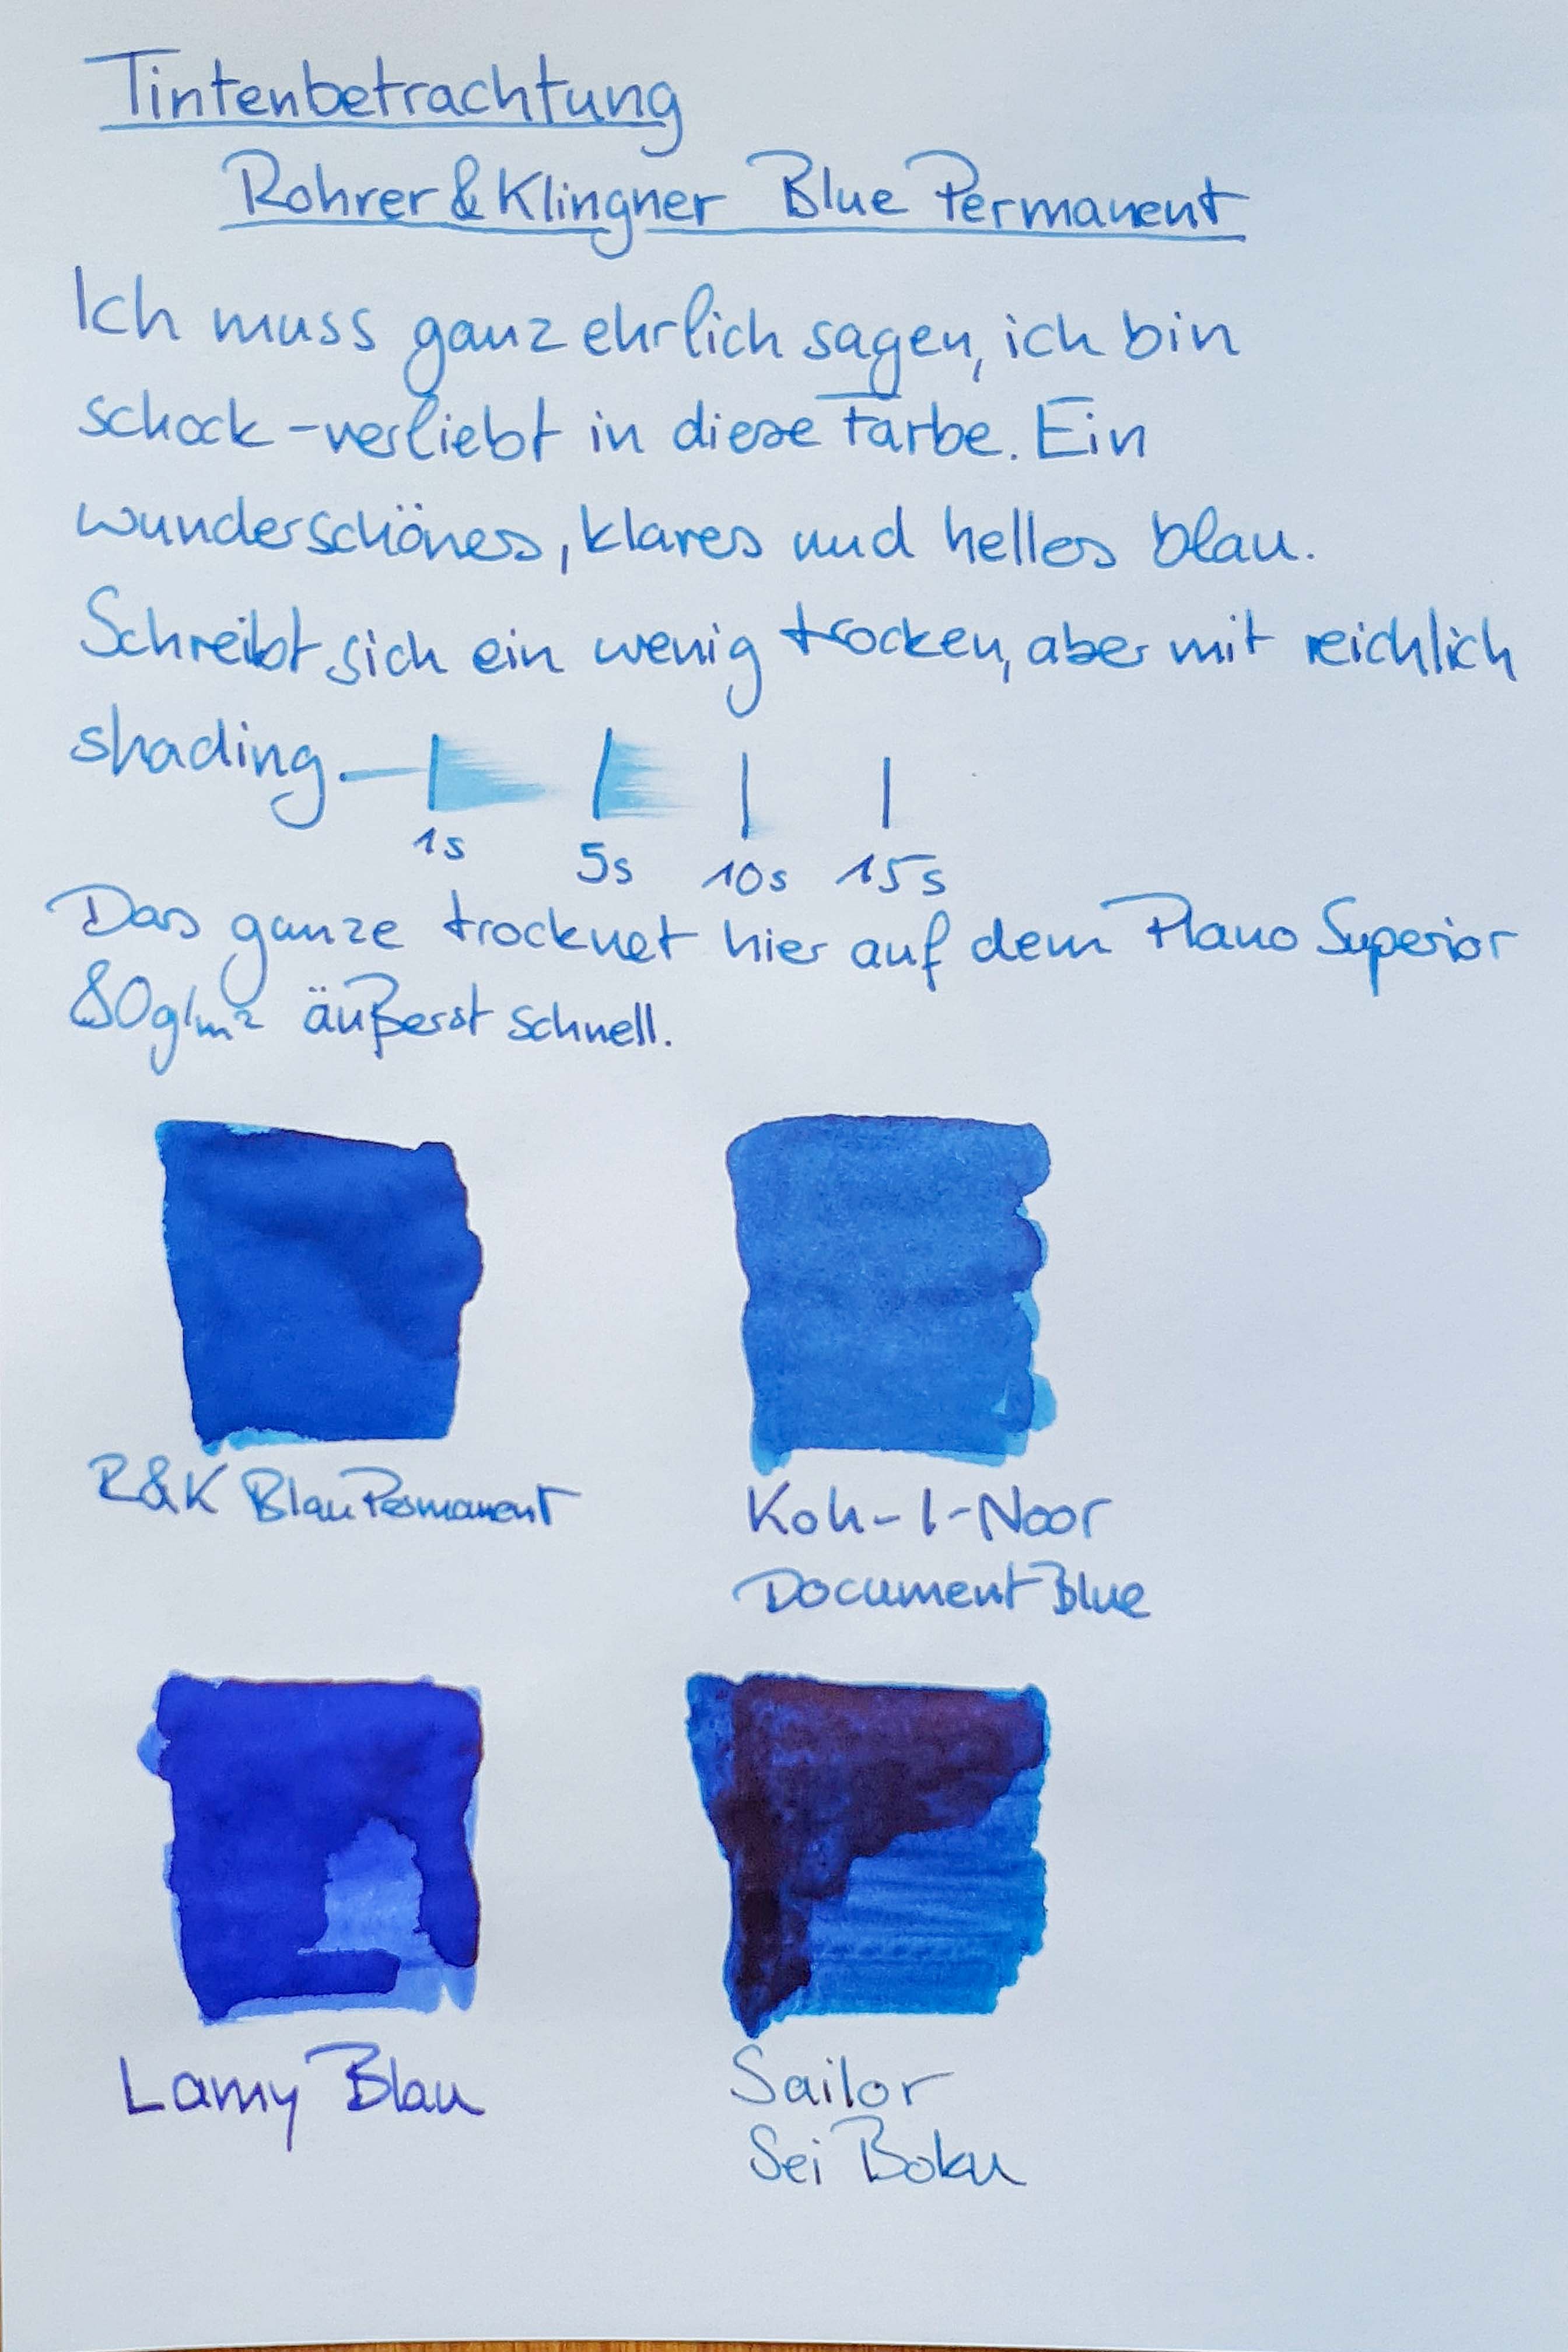 Tintenbetrachtung
Rohrer & Klingner Blue Permanent
Ich muss ganz ehrlich sagen, ich bin
schock-verliebt in diese Farbe. Ein
wunderschönes, klares und helles blau.
Schreibt sich ein wenig trocken, aber mit reichlich
shading.
1s 5s 10s 15s
Das ganze trocknet hier auf dem Plano Superior
80g/m² äußerst schnell.
R&K Blau Permanent
Koh-I-Noor
Document Blue
Lamy Blau
Sailor
Sei Boku